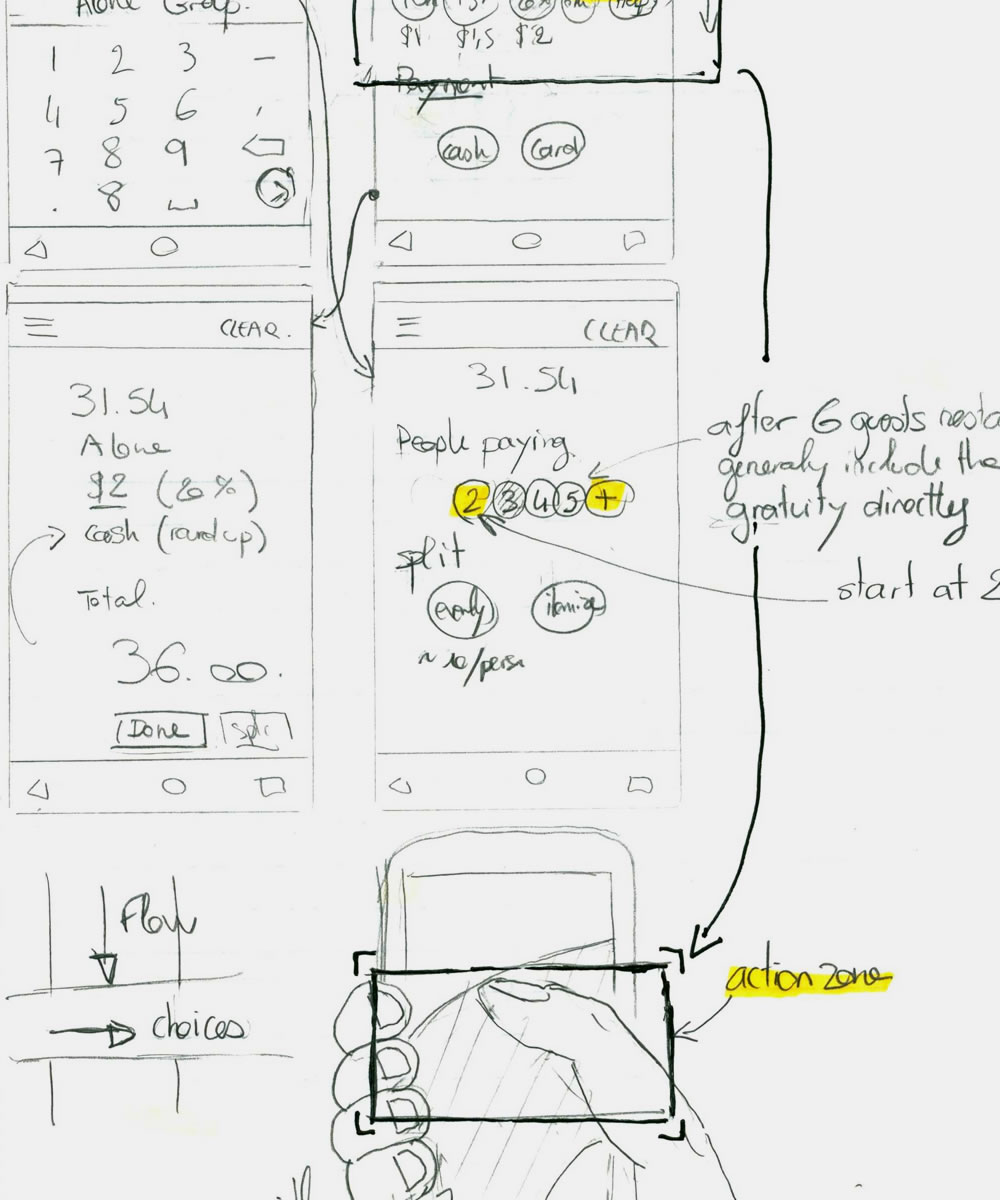 Alone Group.
1 2 3 —
4 5 6 ,
7 8 9
. 8
$1 $1,5 $2
Payment
cash card
CLEAR.
31.54
Alone
$2 (20%)
cash (round up)
Total.
36.00.
Done Split
CLEAR
31.54
People paying
2 3 4 5 +
split
evenly itemize
~ 10/pers
after 6 guests
generaly include the
gratuity directly
start at 2
Flow
choices
action zone